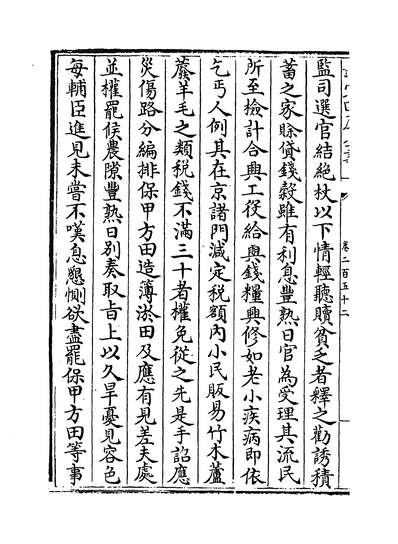 監司選官結絶杖以下情輕聽贖貧乏者釋之勸誘積
蓄之家賒貸錢穀雖有利息豐熟日官為受理其流民
所至檢計合興工役給與錢糧興修如老小疾病即依
乞丐人例其在京諸門減定税額内小民販易竹木蘆
蘶羊毛之類税錢不滿三十者權免從之先是手詔應
災傷路分編排保甲方田造簿淤田及應有見差夫處
並權罷候農隙豐熟日别奏取㫖上以久旱憂見容色
每輔臣進見未嘗不嘆息懇惻欲盡罷保甲方田等事
卷二百五十二